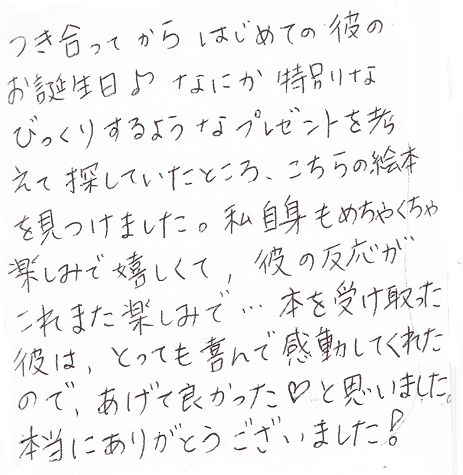 つき合ってから はじめての 彼の
お誕生日♪ なにか 特別な
びっくりするような プレゼントを考
えて 探していたところ、こちらの絵本
を見つけました。私自身もめちゃくちゃ
楽しみで 嬉しくて, 彼の反応が
これまた楽しみで… 本を受け取った
彼は, とっても喜んで感動してくれた
ので, あげて良かった♡と思いました。
本当にありがとうございました!